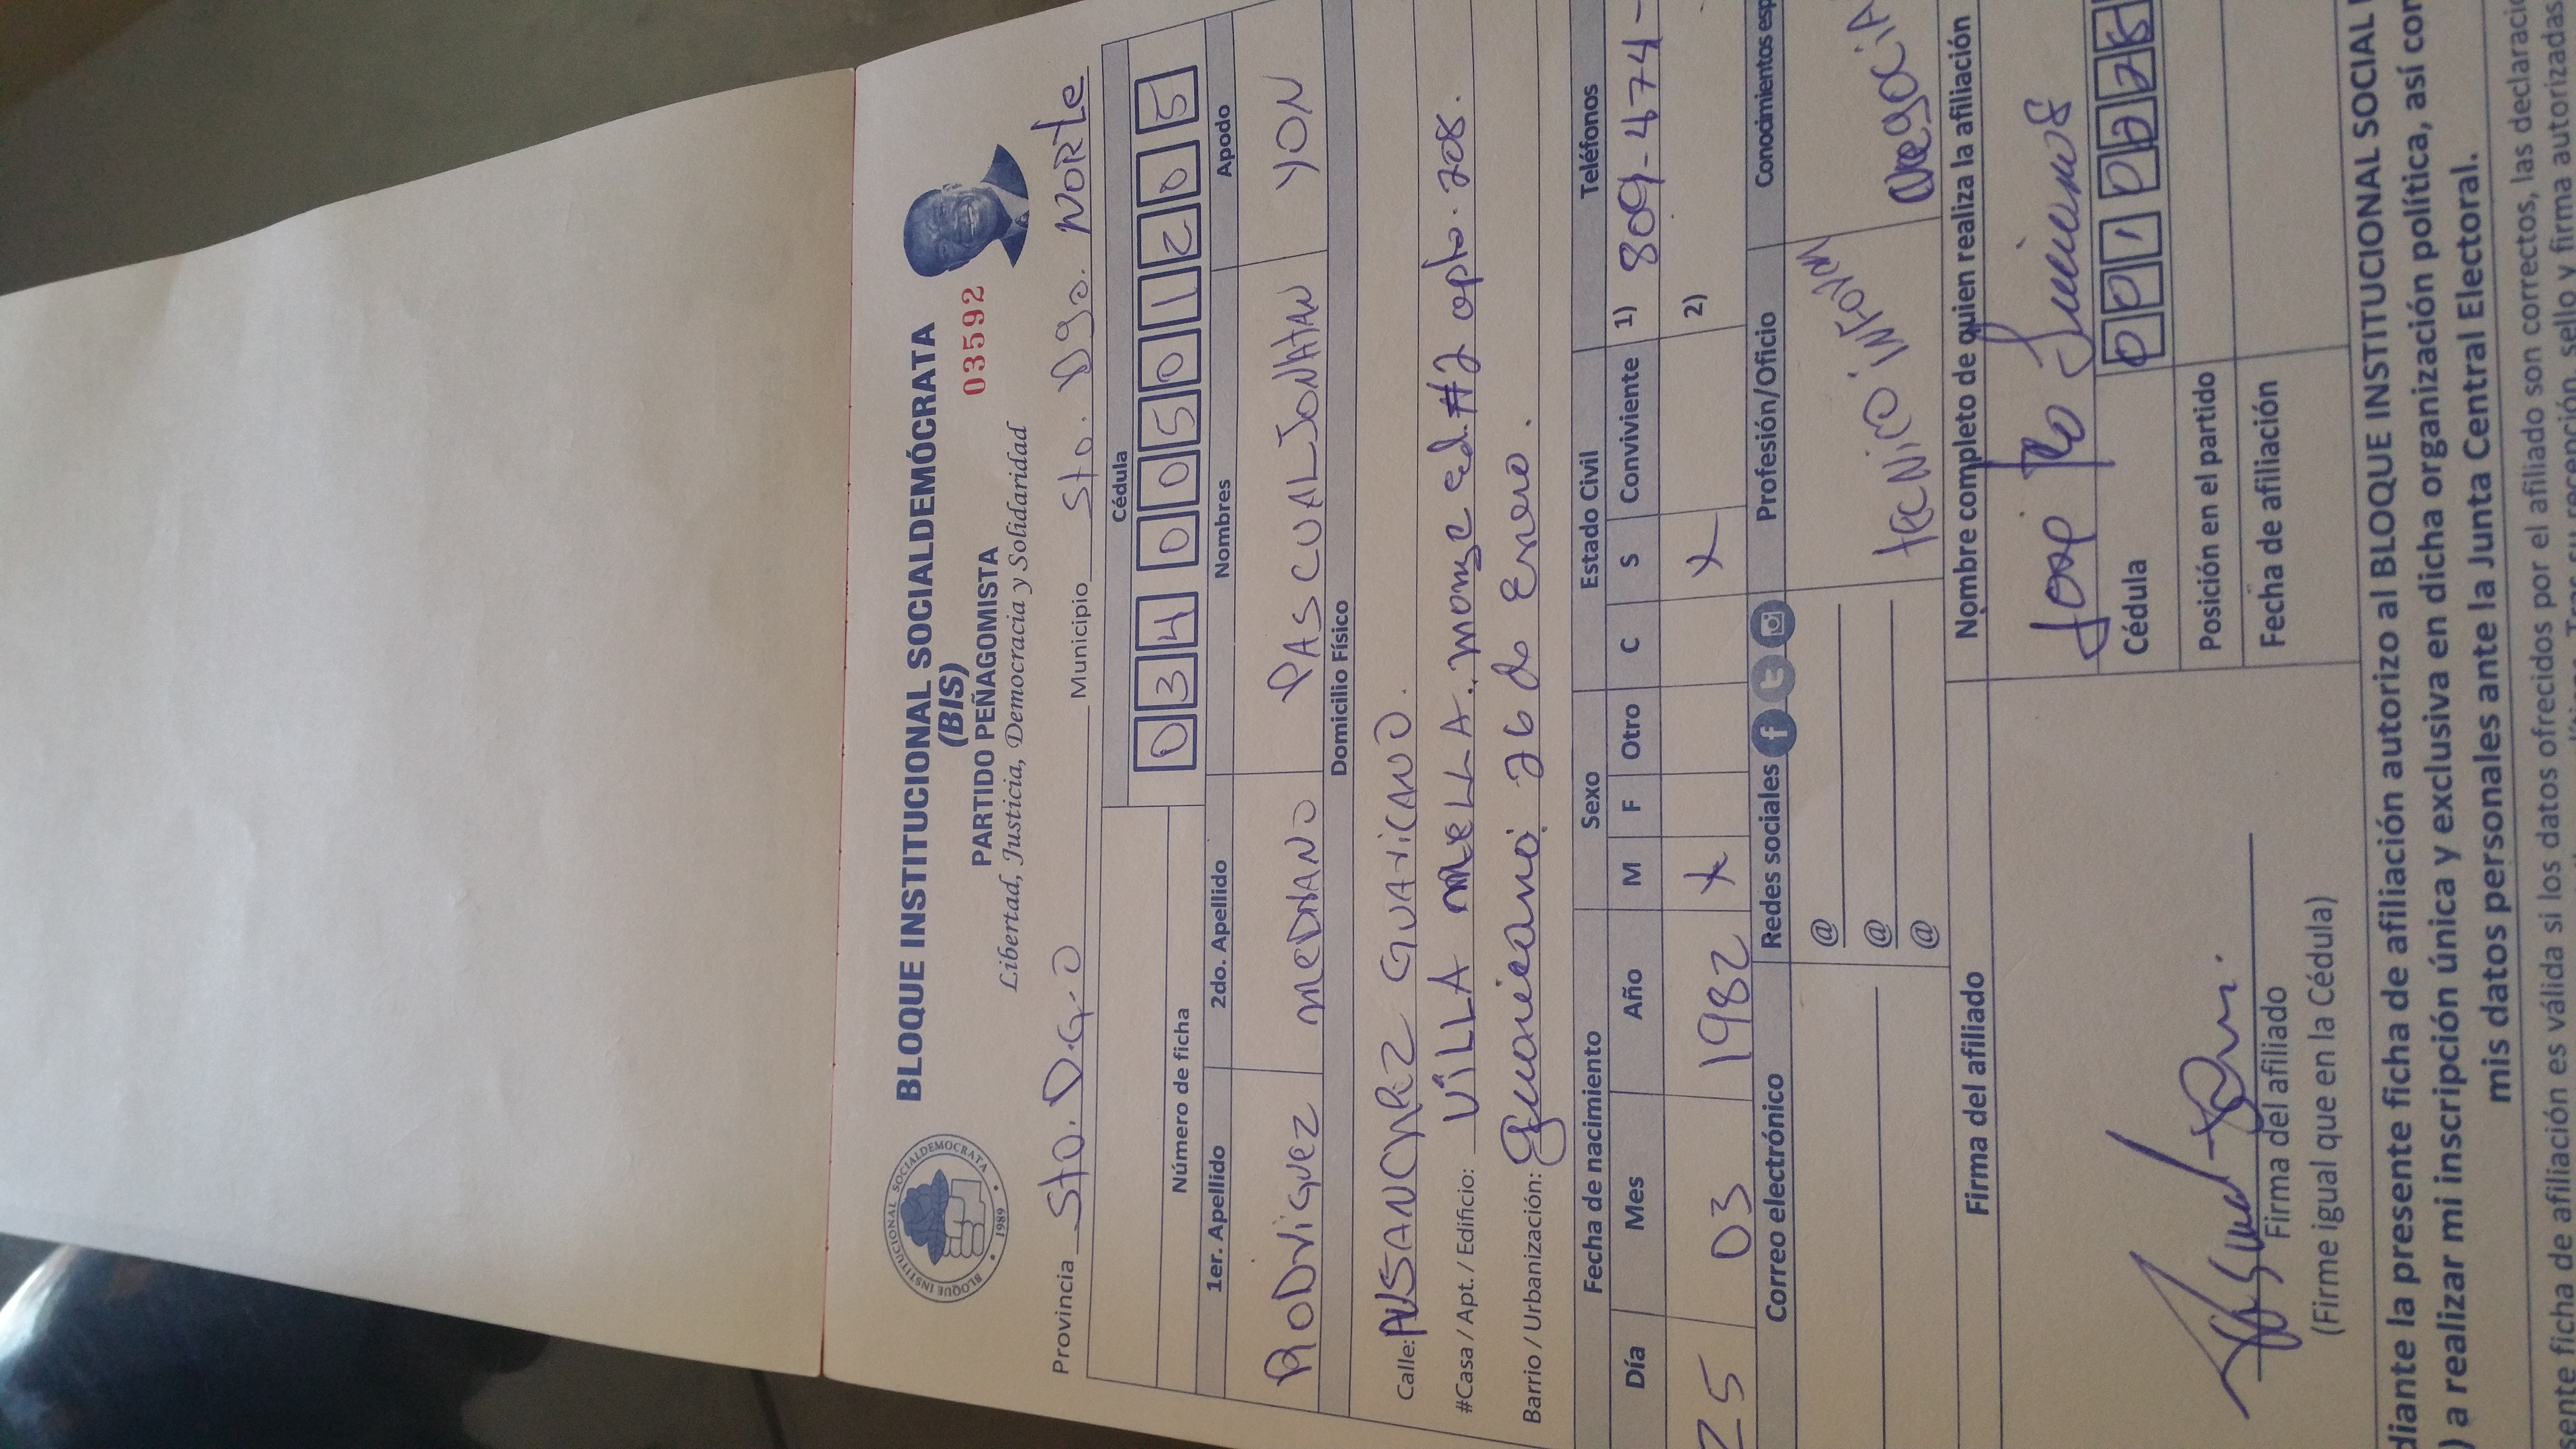 BLOQUE INSTITUCIONAL SOCIALDEMOCRATA
1989
BLOQUE INSTITUCIONAL SOCIALDEMÓCRATA
(BIS)
PARTIDO PEÑAGOMISTA
03592
Libertad, Justicia, Democracia y Solidaridad
Provincia Sto. D.G.O Municipio Sto. Dgo. NORte
Número de ficha
Cédula
034 0050120 5
1er. Apellido 2do. Apellido Nombres Apodo
RODriGuez MeDrANO PASCUAL JONATAN YON
Domicilio Físico
Calle: GUAriCANO.
#Casa / Apt. / Edificio: ViLLA MeLLA. ed. #2 apto. 208.
Barrio / Urbanización: Guaricano. 26 de Enero.
Fecha de nacimiento Sexo Estado Civil Teléfonos
Día Mes Año M F Otro C S Conviviente 1) 809-474-
25 03 1982 X X 2)
Correo electrónico Redes sociales Profesión/Oficio Conocimientos esp
@
@
@
teCNiCO iNFOrM
NegociA
Firma del afiliado
Nombre completo de quien realiza la afiliación
Jose
Cédula 001 02
Posición en el partido
Fecha de afiliación
Firma del afiliado
(Firme igual que en la Cédula)
diante la presente ficha de afiliación autorizo al BLOQUE INSTITUCIONAL SOCIAL
) a realizar mi inscripción única y exclusiva en dicha organización política, así con
mis datos personales ante la Junta Central Electoral.
sente ficha de afiliación es válida si los datos ofrecidos por el afiliado son correctos, las declaracio
sello y firma autorizadas